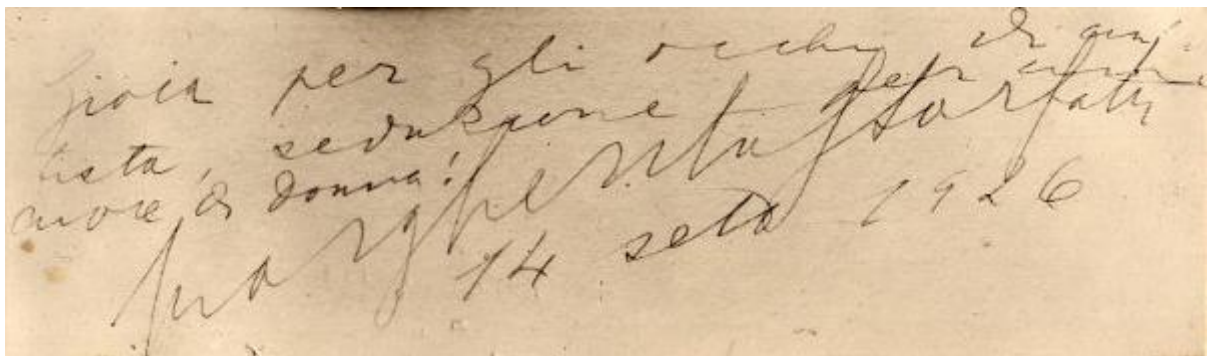 Gioia per gli occhi di ar-
tista, seduzione per
cuore di donna!
Margherita G Sarfatti
14 sett 1926